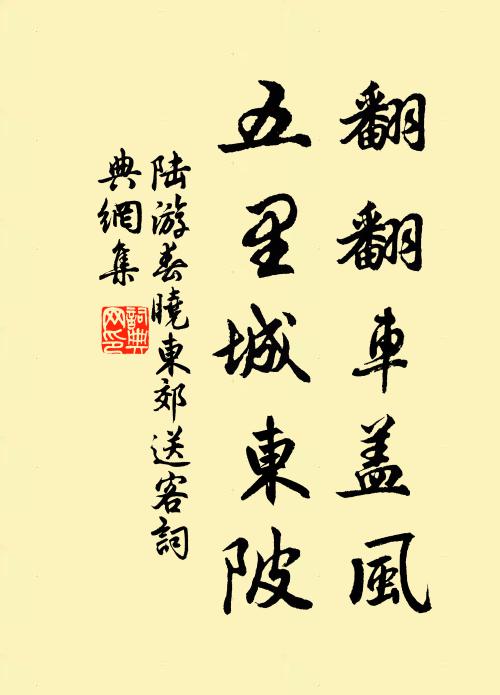 翻翻車盖風
五里城東陂
陸游春曉東郊送客詞
典網集
詞典网印